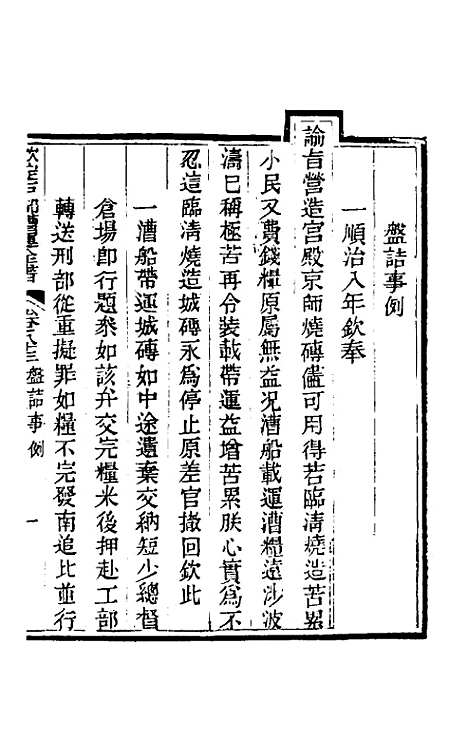 盤詰事例
一順治八年欽奉
諭旨營造宮殿京師燒磚儘可用得若臨清燒造苦累
小民又費錢糧原屬無益况漕船載運漕糧遠涉波
濤已稱極苦再令裝載帶運益增苦累朕心實爲不
忍這臨清燒造城磚永爲停止原差官撤回欽此
一漕船帶運城磚如中途遺棄交納短少總督
倉場卽行題叅如該弁交完糧米後押赴工部
轉送刑部從重擬罪如糧不完發南追比並行
欽定戶部漕運全書
卷八十三 盤詰事例 一